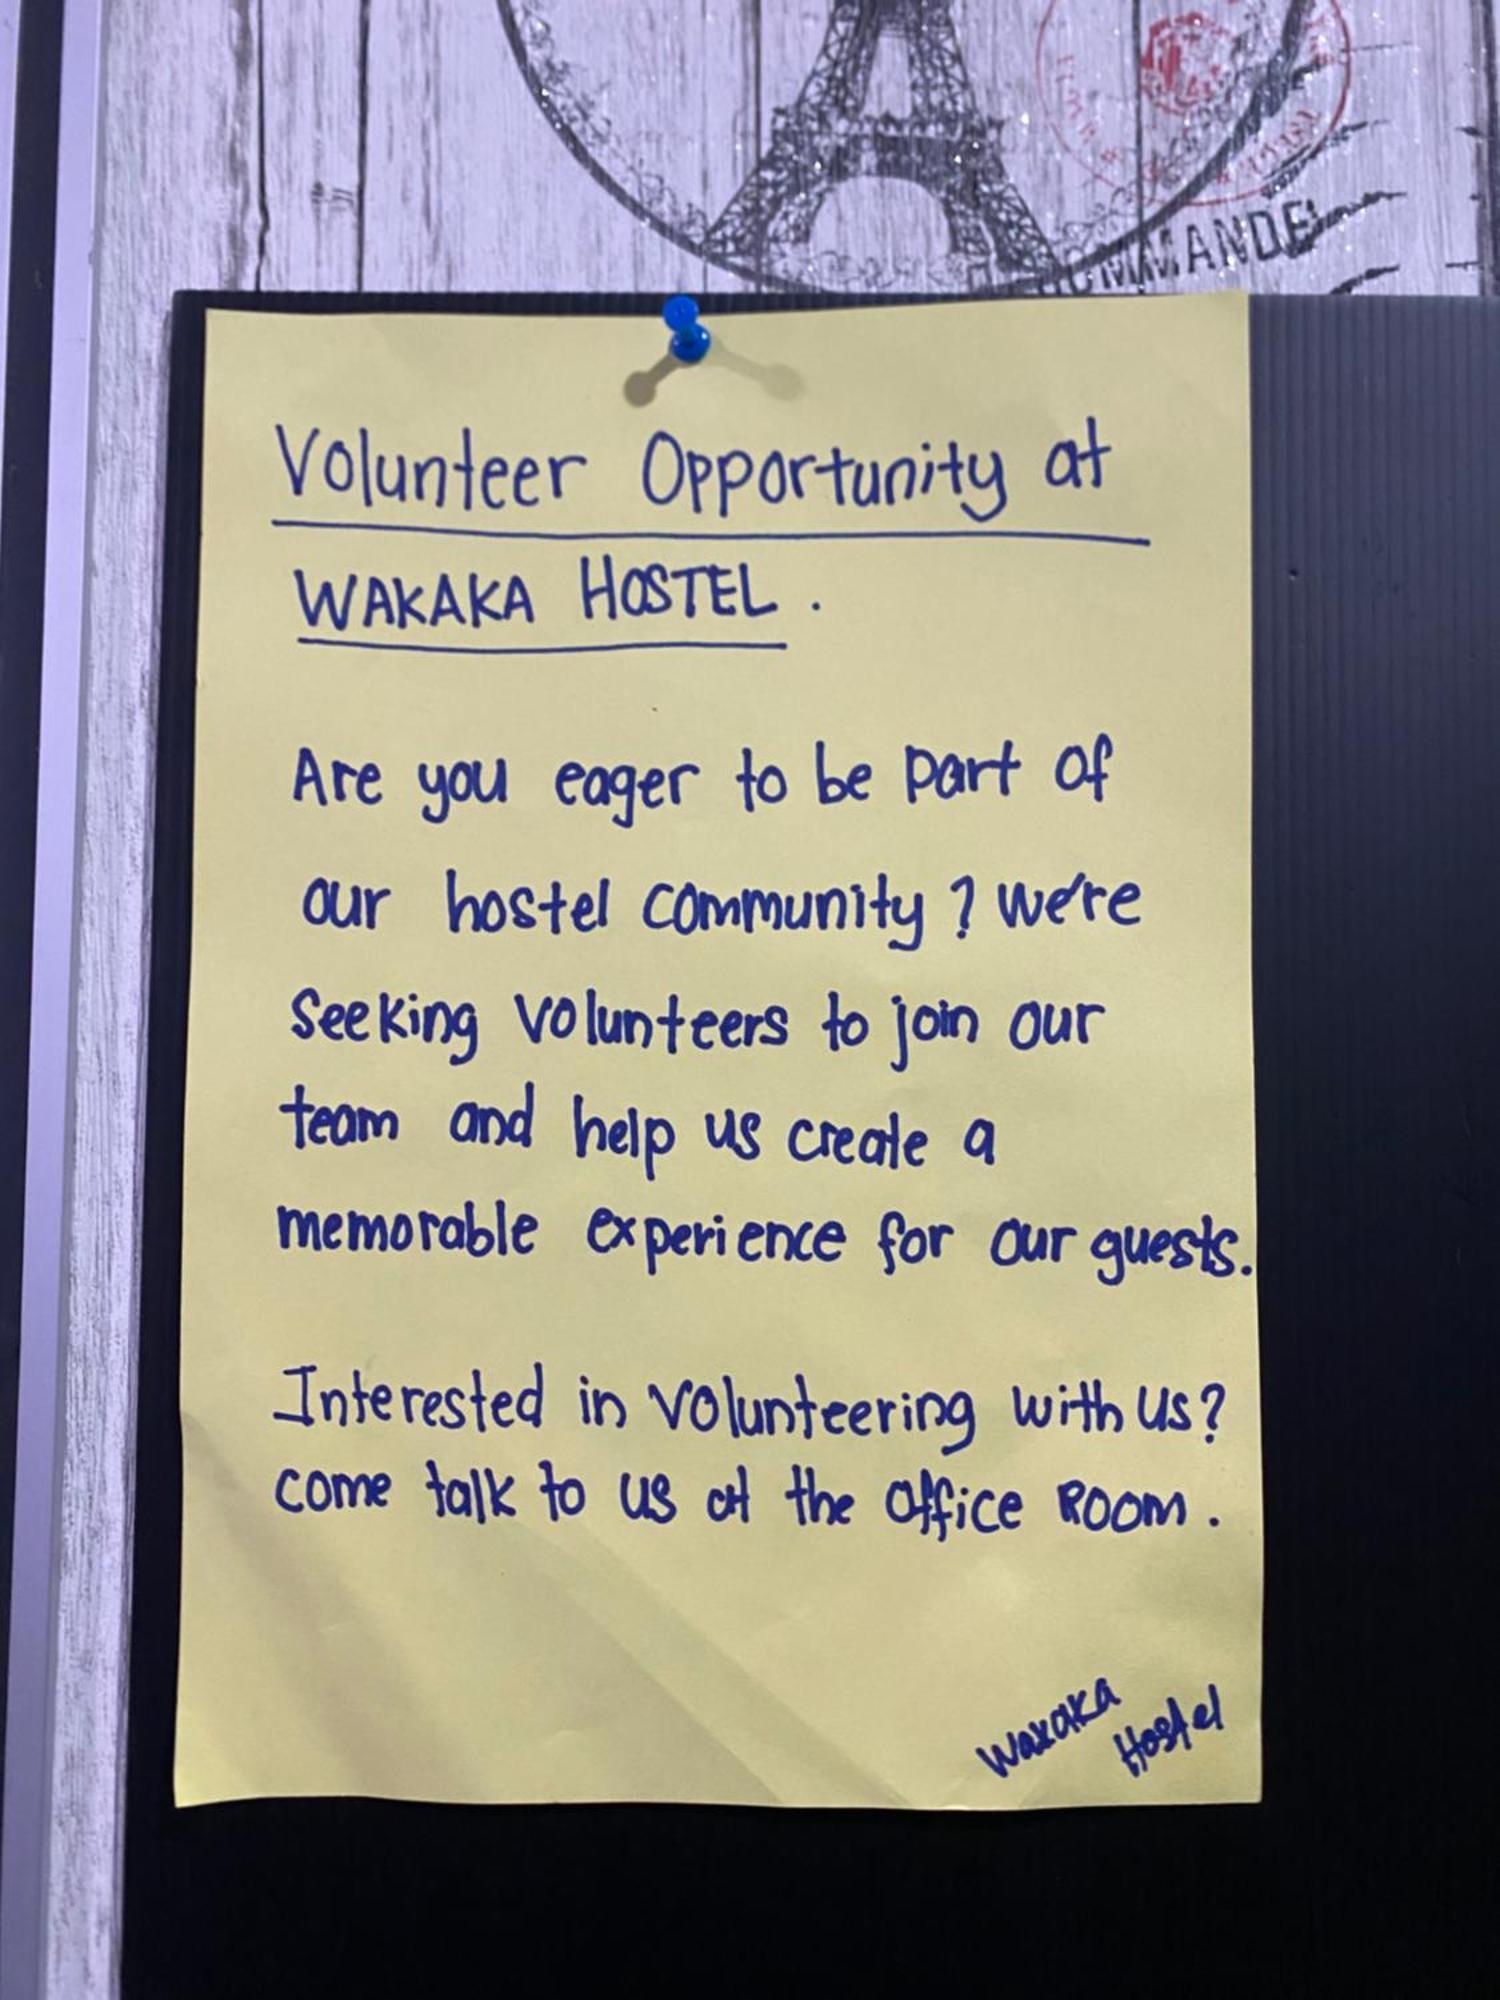 OMMANDE
Volunteer Opportunity at
WAKAKA HOSTEL.
Are you eager to be part of
our hostel community? we're
seeking volunteers to join our
team and help us create a
memorable experience for our guests.
Interested in volunteering with us?
come talk to us at the office ROOM.
Wakaka
Hostel